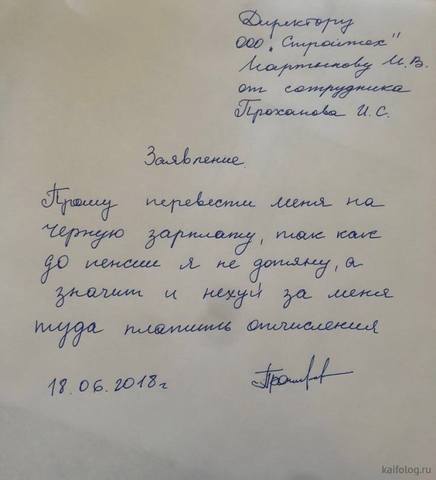 Директору
ООО "Стройтех"
Мартынову И.В.
от сотрудника
Проханова И.С.
Заявление.
Прошу перевести меня на
черную зарплату, так как
до пенсии я не дотяну, а
значит и нехуй за меня
туда платить отчисления
18.06.2018г
kaifolog.ru